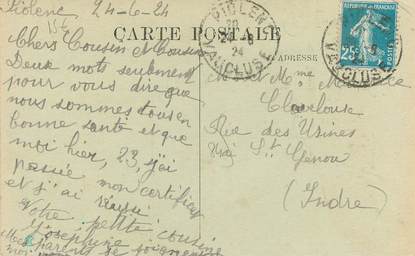 Piolenc 24-6-24
CARTE POSTALE
ADRESSE
Chers Cousin et Cousine
Deux mots seulement
pour vous dire que
nous sommes tous en
bonne santé et que
moi hier, 23, j'ai
passé mon certificat
et j'ai réussi
Votre petite cousine
Joséphine
parents se joignent
PIOLENC
24-6
24
VAUCLUSE
RÉPUBLIQUE FRANÇAISE
25c
VAUCLUSE
M et Mme
Rue des Usines
St Genou
(Indre)